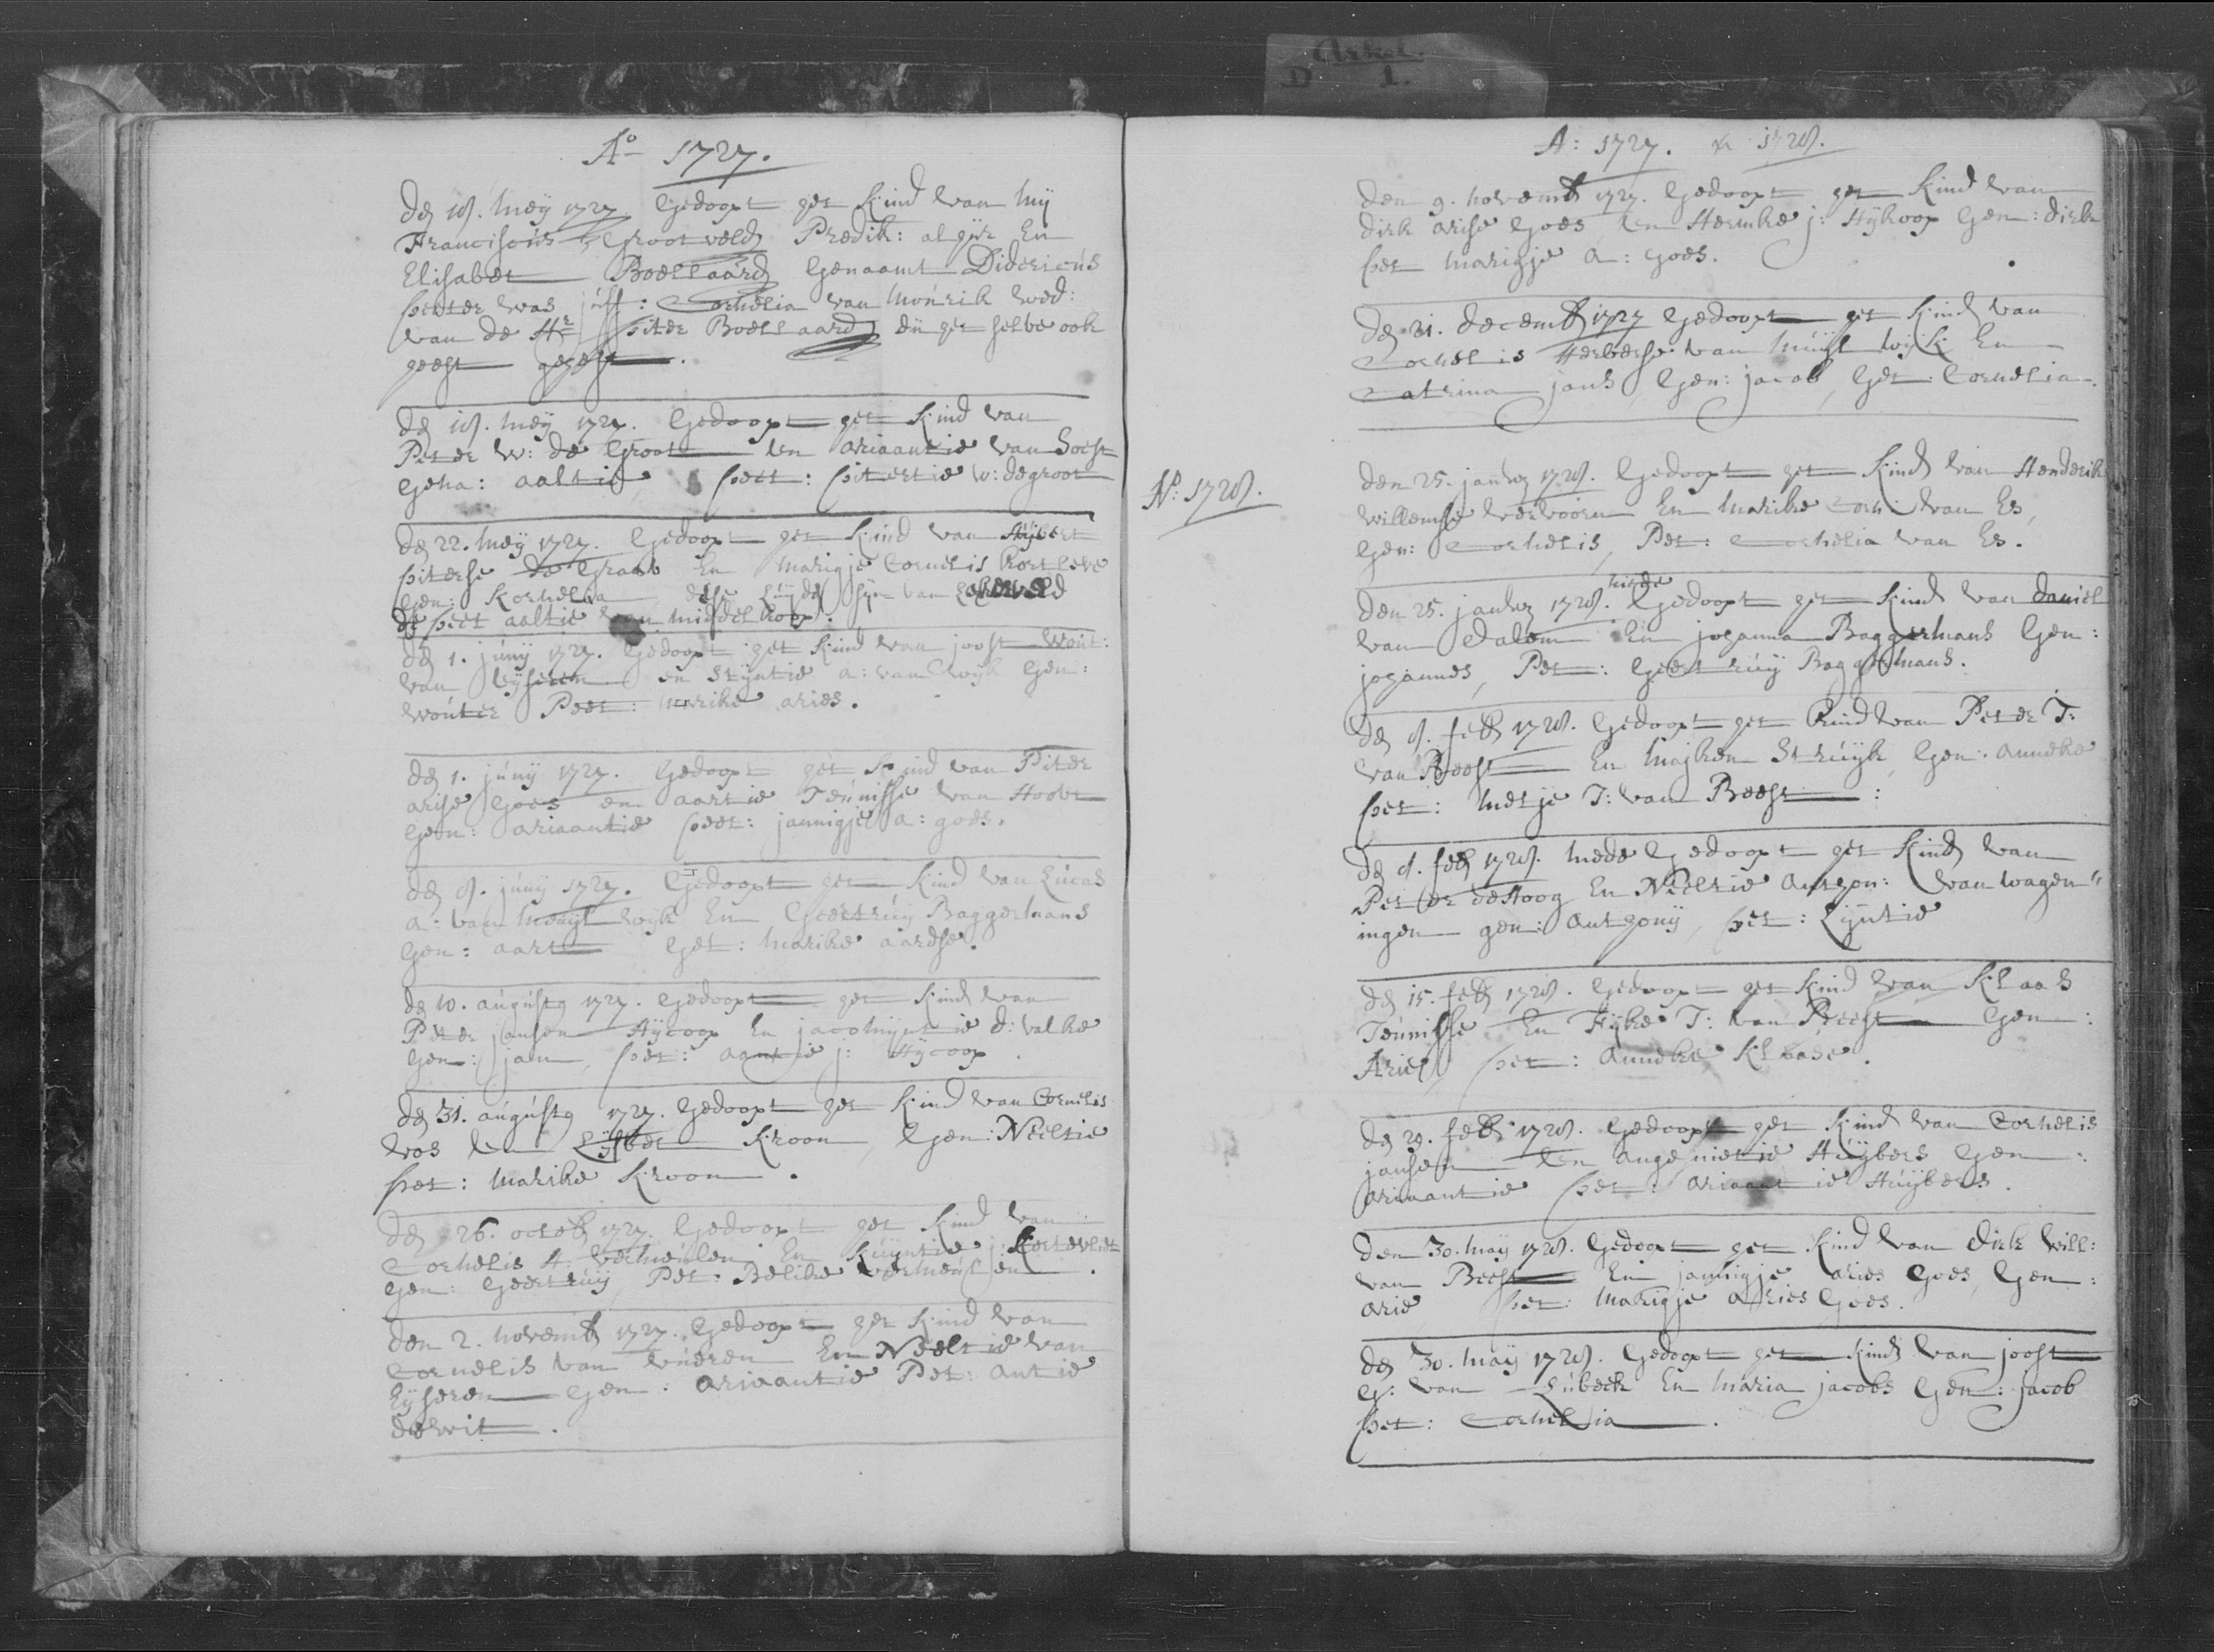 Arkel.
D 1.
Ao 1727.
den 18. meij 1727 Gedoopt het kind van mij
Franciscus Grootveld Predik: alhijr En
Elisabet Boellaard Genaamt Didericus
peeter was juff: Cornelia van Mourik wed:
van de Hr piter Boellaard die het selve ook
heeft geheft.
den 18. meij 1727. Gedoopt het kind van
Peter w: de Groot En ariaantie van Soest
Gena: aaltie peet: pitertie w: de groot
den 22. meij 1727. Gedoopt het kind van Huijbert
piterse de Graab En Marigje Cornelis
Gen: Kornelia dese luijden sijn van
de peet aaltie van middelkoop.
den 1. junij 1727. Gedoopt het kind van joost wout:
van Eijseren en Stijntie a: van wijk Gen:
wouter Peet: marike aries.
den 1. junij 1727. Gedoopt het kind van Piter
arise Goes en aartie Teunisse van Hoorn
Gen: ariaantie peet: jannigje a: goes.
den 8. junij 1727. Gedoopt het kind van Lucas
a: van Meuijl wijk En Geertruij Baggermans
Gen: aart Get: marike aardse.
den 10. augusty 1727. Gedoopt het kind van
Peter jansen Hijcoop En jacomijntie d: valke
Gen: jan, pet: aantie j: Hijcoop.
den 31. augusty 1727. Gedoopt het kind van Cornelis
vos En Lijsbet Kroon, Gen: Neeltie
pet: marike Kroon.
den 26. octob 1727. Gedoopt het kind van
Cornelis H. vermeulen En Kuijntie j: Kortevliet
gen: Geertruij, Pet: Belike vermeulen.
den 2. novemb 1727. Gedoopt het kind van
Cornelis van Vueren En Neeltie van
Eijseren Gen: ariaantie Pet: antie
de wit.
A: 1727. & 1728.
den 9. novemb 1727. Gedoopt het kind van
dirk arise Goes En Hermke j: Hijkoop Gen: dirk
pet marigje a: goes.
den 21. decemb 1727 Gedoopt het kind van
Cornelis Herberse van Muijl wijk En
Catrina jans Gen: jacob, Get: Cornelia.
Ao: 1728.
den 25. januarij 1728. Gedoopt het kind van Henderik
willemse vervoorn En marike Corn: van Es,
Gen: Cornelis, Pet: Cornelia van Es.
mede
den 25. januarij 1728. Gedoopt het kind van daniel
van dalem En johanna Baggermans Gen:
johannes, Pet: Geertruij Baggermans.
den 8. feb 1728. Gedoopt het kind van Peter T:
van Beest En Majken Struijk, Gen: anneke
pet: Metje T: van Beest:
den 8. feb 1728. mede Gedoopt het kind van
Peter de Hoog En Neeltie anthon: van wagen"
ingen gen: anthonij, pet: Lijntie
den 15. feb 1728. Gedoopt het kind van Klaas
Teunisse En Fijke T: van Beest Gen:
Arie, pet: anneke Klaase.
den 29. feb 1728. Gedoopt het kind van Cornelis
jansen En angenietie Huijbers Gen:
ariaantie pet: ariaantie Huijbers.
den 30. maij 1728. Gedoopt het kind van dirk Will:
van Beest En jannigje aries Goes, Gen:
arie, pet: marigje aries Goes.
den 30. maij 1728. Gedoopt het kind van joost
G: van Lubeek En maria jacobs Gen: jacob
pet: Cornelia.